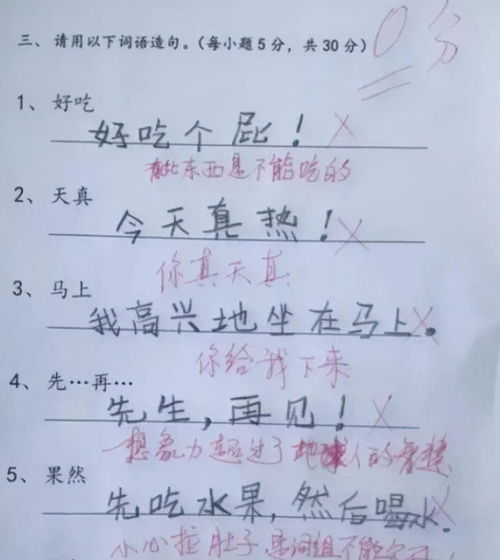 三、请用以下词语造句。(每小题5分，共30分)
0分
1、好吃
好吃个屁！
有些东西是不能吃的
2、天真
今天真热！
你真天真
3、马上
我高兴地坐在马上。
你给我下来
4、先…再…
先生，再见！
想象力超过了地球人的智慧
5、果然
先吃水果，然后喝水
小心拉肚子，是词组不能分开